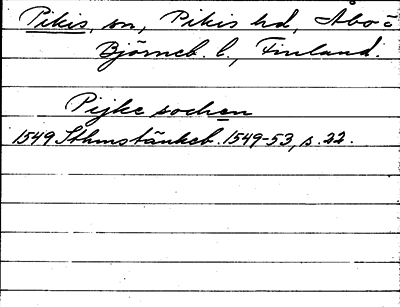 Pikis, sn, Pikis hd, Åbo o
Björneb. l., Finland.
Pijke sochen
1549 Sthmstänkeb. 1549-53, s. 22.